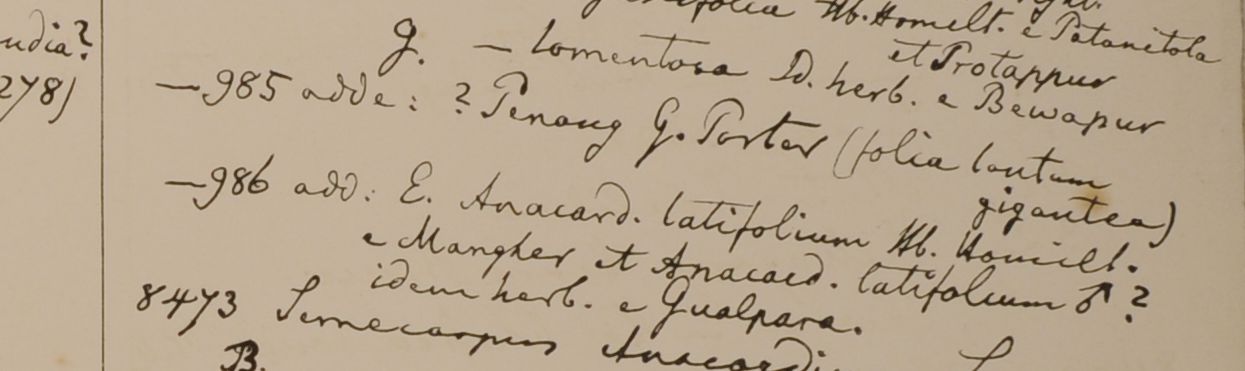 udia?
278)
folia Hb. Hamilt. e Patanitola
et Protappur
g. — tomentosa Id. herb. e Bewapur
— 985 adde: ? Penang G. Porter (folia tantum
gigantea)
— 986 add: E. Anacard. latifolium Hb. Hamilt.
e Mangher et Anacard. latifolium ♂ ?
idem herb. e Gualpara.
8473 Semecarpus
B.